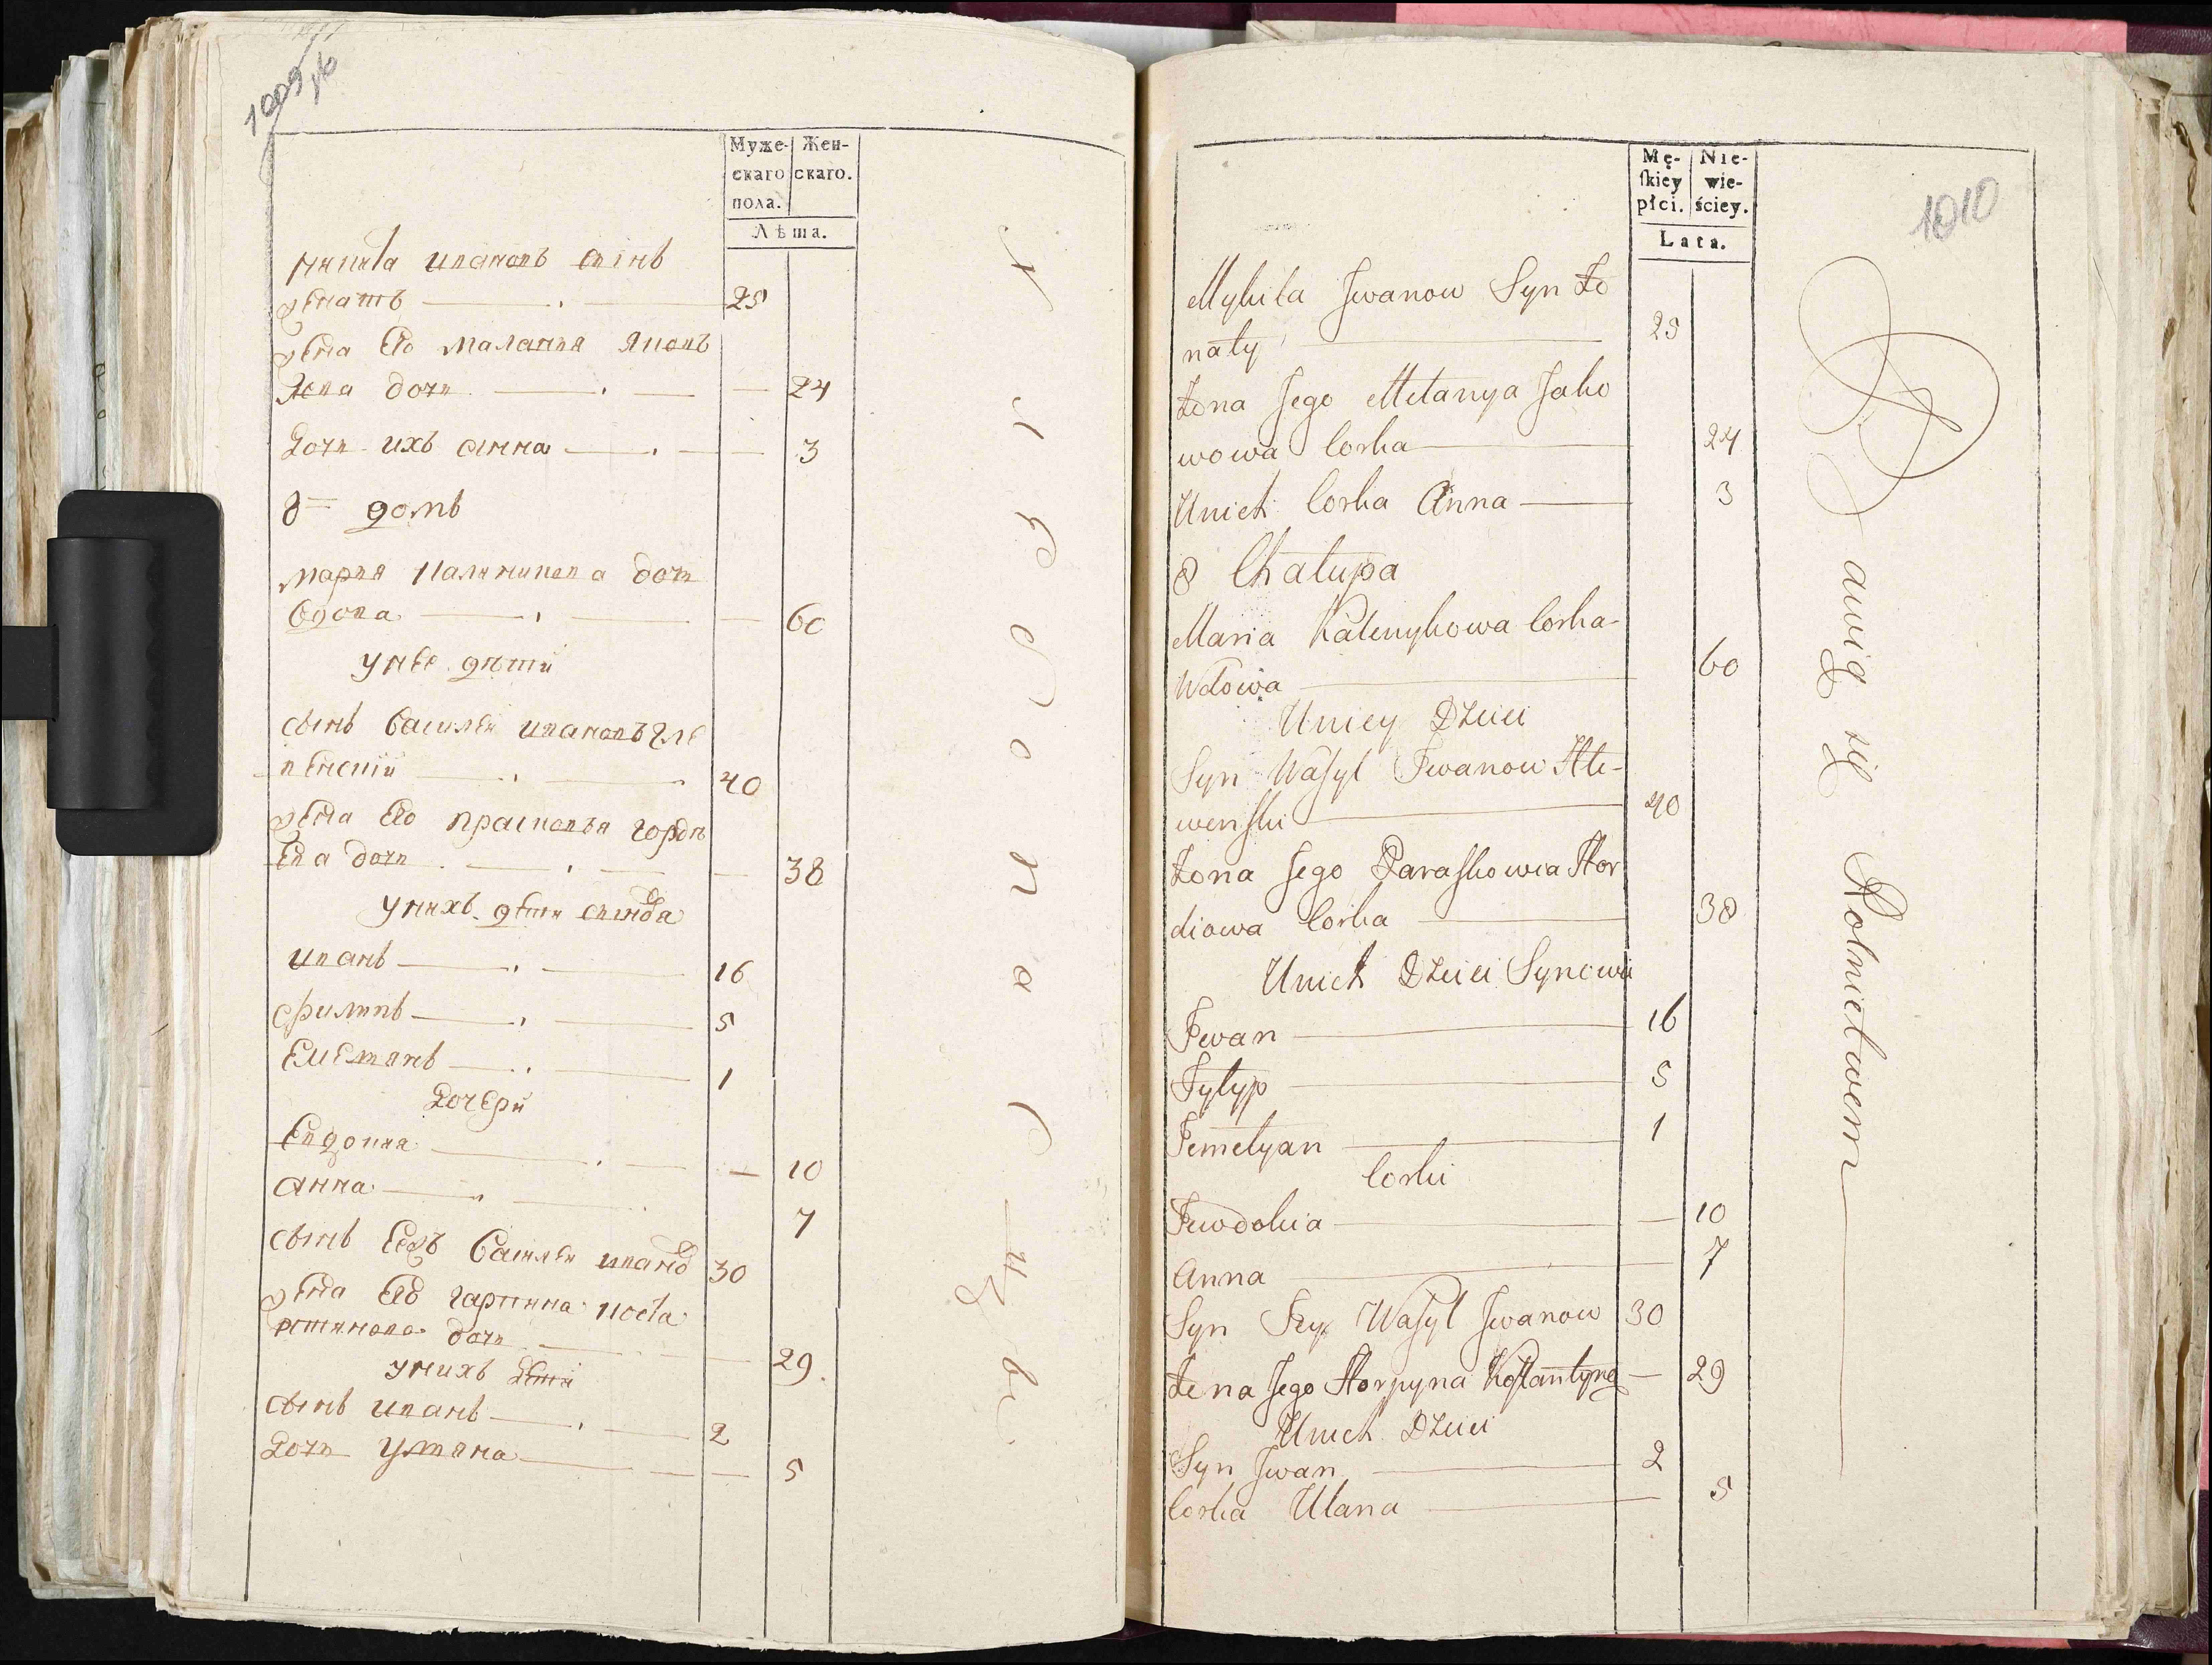 1009
Муже-
скаго
пола.
Жен-
скаго.
Лѣта.
микита ивановъ синъ
женатъ 25
жена его маланъя яковъ
лева дочъ 24
Дочъ ихъ анна 3
8 домъ
марья калиникова дочъ
вдова 60
у нее дѣти
сынъ василеи ивановъ гле
венский 40
жена его прасковъя горде
ева дочъ 38
у нихъ дети
иванъ 16
филипъ 5
емелянъ 1
дочери
евдокия 10
анна 7
сынъ еежъ василеи иванов 30
жена его гарпина коста
нтинова дочъ 29
у нихъ дети
сынъ иванъ 2
дочъ уляна 5
1010
Mę-
skiey
płci.
Nie-
wie-
ściey.
Lata.
Mykita Jwanow Syn żo
naty 25
żona Jego Melanya Jako
wowa Corka 24
Unich Corka Anna 3
8 Chałupa
Maria Kalenykowa Corka
Wdowa 60
Uniey Dzieci
Syn Wasyl Jwanow Hle-
wenski 40
żona Jego Paraskowia Hor
diowa Corka 38
Unich Dzieci Synowie
Jwan 16
Fylyp 5
Jemelyan 1
Corki
Jewdokia 10
Anna 7
Syn Jey Wasyl Jwanow 30
żona Jego Horpyna Kostantyno 29
Unich Dzieci
Syn Jwan 2
Corka Ulana 5
Bawią się Rolnictwem